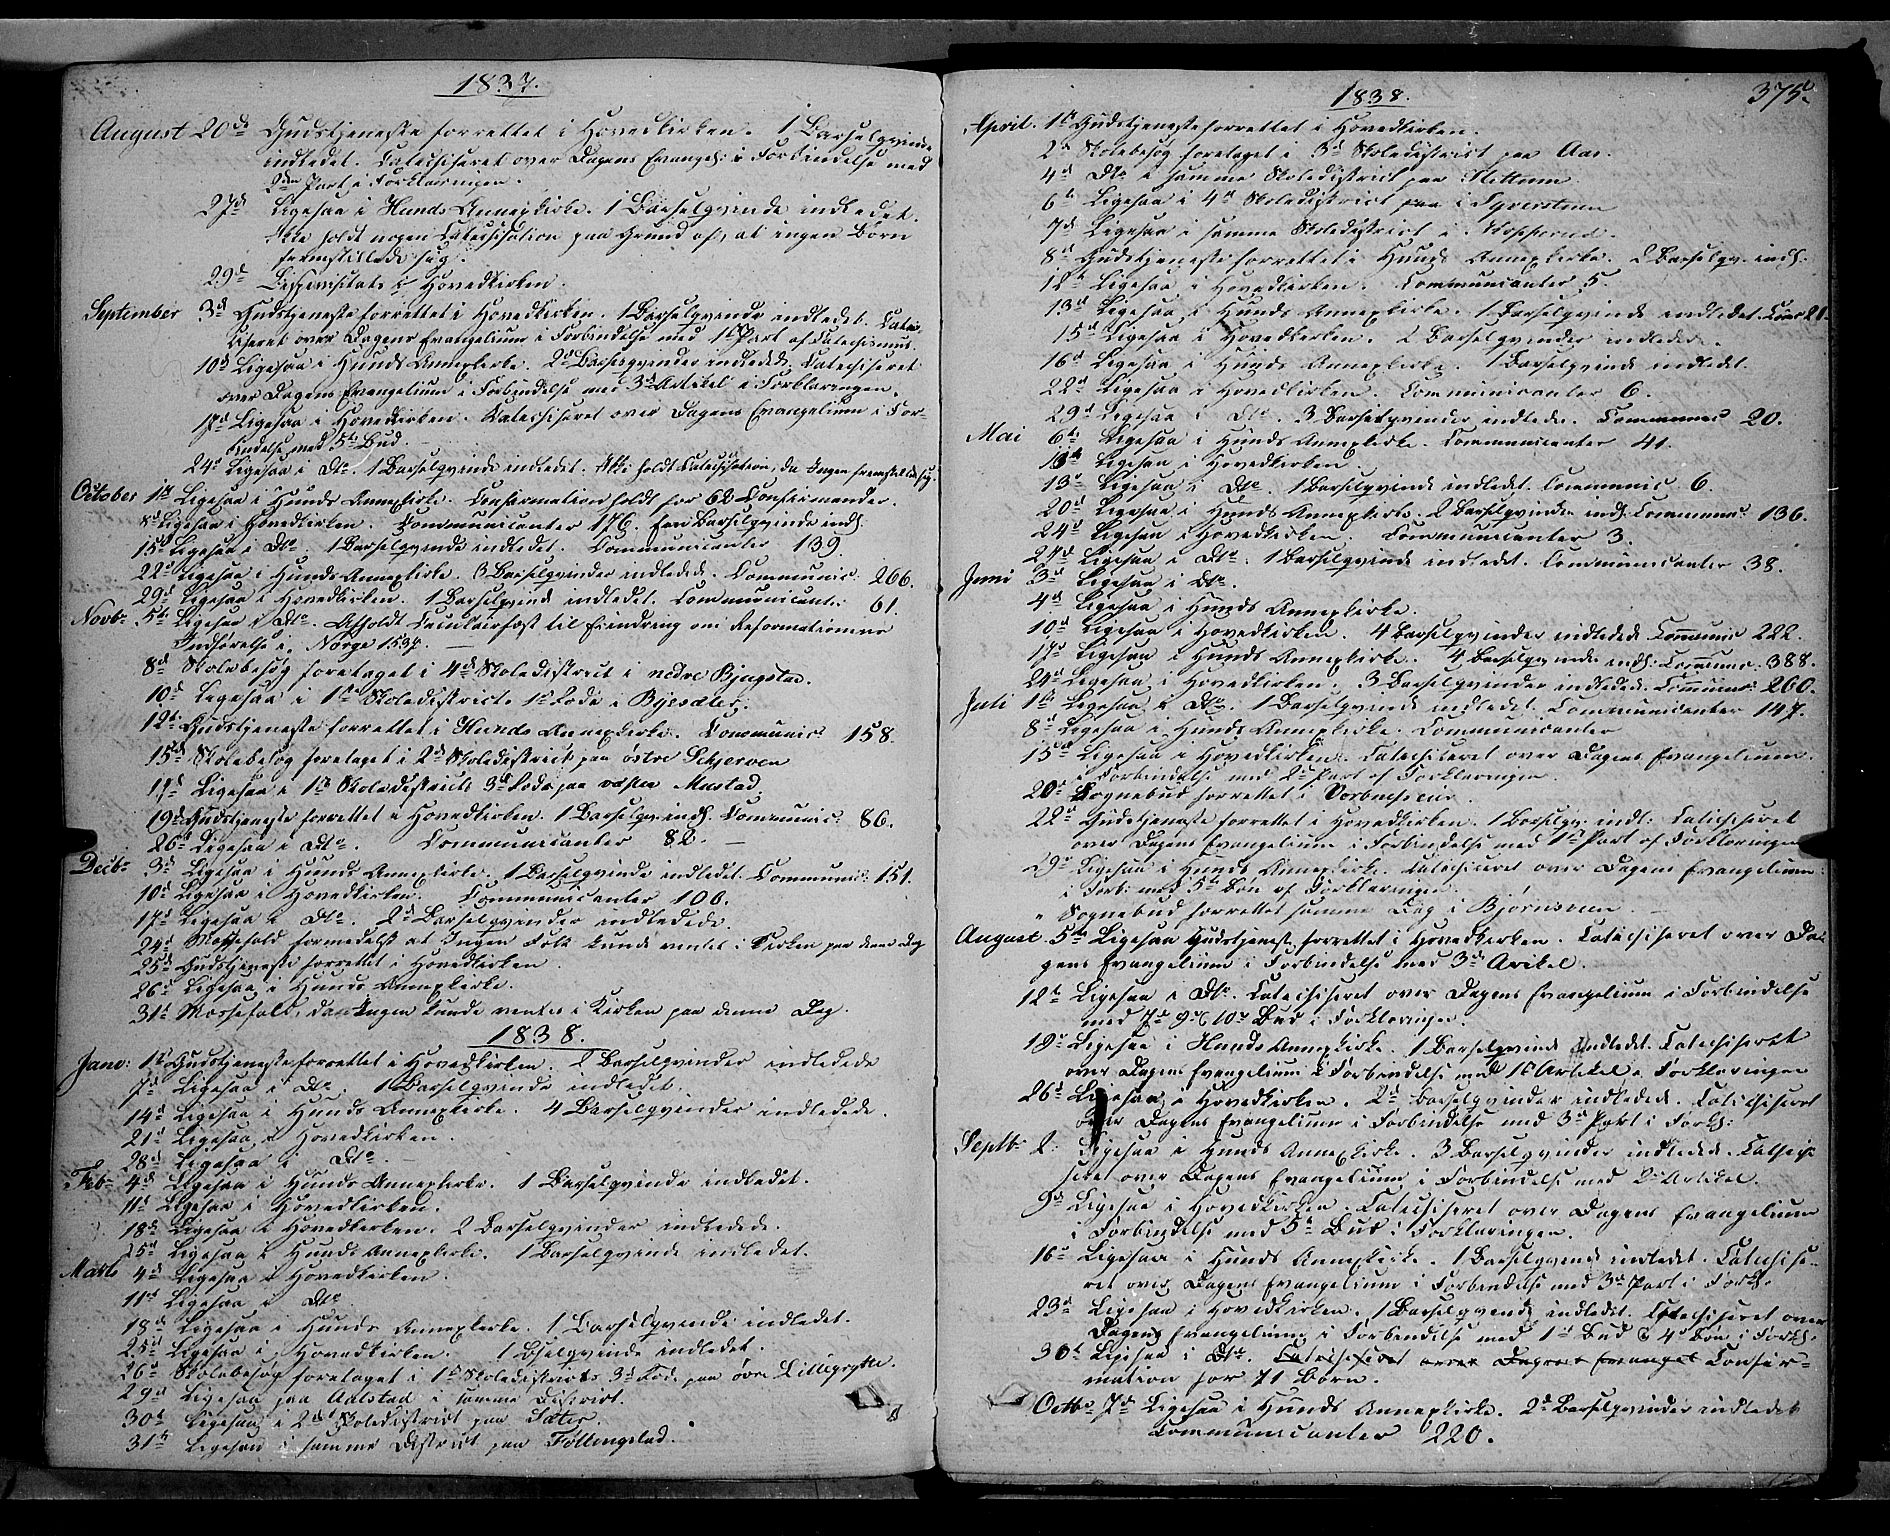 1837.
August 20de Gudstjeneste forrettet i Hovedkirken. 1 Barselqvinde
indledet. Catechiseret over Dagens Evangel: i Forbindelse med
2den Part i Forklaringen.
27d Ligesaa i Hunds Annexkirke. 1 Barselqvinde indledet.
Ikke holdt nogen Catechisation paa Grund af, at ingen Børn
fremstillede sig.
29d Bispevisitats i Hovedkirken.
September 3d Gudstjeneste forrettet i Hovedkirken. 1 Barselqvinde indledet. Catechi-
seret over Dagens Evangelium i Forbindelse med 1ste Part af Catechismus.
10d Ligesaa i Hunds Annexkirke. 2de Barselqvinder indledede. Catechiseret
over Dagens Evangelium i Forbindelse med 3d Artikel i Forklaringen.
17d Ligesaa i Hovedkirken. Catechiseret over Dagens Evangelium i For-
bindelse med 5te Bud.
24d Ligesaa i Dto. 1 Barselqvinde indledet. Ikke holdt Catechisation, da Ingen fremstillede sig.
October 1ste Ligesaa i Hunds Annexkirke. Confirmation holdt for 62 Confirmander.
8d Ligesaa i Hovedkirken. Communicanter 176. Een Barselqvinde indl.
15d Ligesaa i Dto. 1 Barselqvinde indledet. Communicanter 139.
22d Ligesaa i Hunds Annexkirke. 3 Barselqvinder indledede. Communic: 266.
29d Ligesaa i Hovedkirken. 1 Barselqvinde indledet. Communicanter 61.
Novbr 5te Ligesaa i Dto. Afholdt Secularfest til Erindring om Reformationens
Indførelse i Norge 1537.
8d Skolebesøg foretaget i 4d Skoledistrict i nedre Bjugstad.
10d Ligesaa i 1ste Skoledistricts 1ste Rode i Byesæter.
12te Gudstjeneste forrettet i Hunds Annexkirke. Communic: 158.
15d Skolebesøg foretaget i 2d Skoledistrict paa østre Schjerven
17d Ligesaa i 1ste Skoledistricts 3d Rode paa vestre Mustad.
19d Gudstjeneste forrettet i Hovedkirken. 1 Barselqv: indl. Communic: 86.
26d Ligesaa i Dto. Communicanter 82.
Decbr 3d Ligesaa i Hunds Annexkirke. 1 Barselqvinde indledet. Communic: 151.
10d Ligesaa i Hovedkirken. Communicanter 100.
17d Ligesaa i Dto. 2d Barselqvinder indledede.
24d Messefald formedelst at Ingen Folk kunde ventes i Kirken paa denne Dag
25d Gudstjeneste forrettet i Hovedkirken.
26d Ligesaa i Hunds Annexkirke.
31te Messefald, da Ingen kunde ventes i Kirken paa denne Dag.
1838.
Janr: 1ste Gudstjeneste forrettet i Hovedkirken. 2 Barselqvinder indledede
7d Ligesaa i Dto. 1 Barselqvinde indledet.
14d Ligesaa i Hunds Annexkirke. 4 Barselqvinder indledede.
21d Ligesaa i Hovedkirken.
28d Ligesaa i Dto
Febr 4d Ligesaa i Hunds Annexkirke. 1 Barselqvinde indledet.
11te Ligesaa i Hovedkirken.
18d Ligesaa i Hovedkirken. 2 Barselqvinder indledede.
25d Ligesaa i Hunds Annexkirke. 1 Barselqvinde indledet.
Marts 4d Ligesaa i Hovedkirken.
11te Ligesaa i Dto.
18d Ligesaa i Hunds Annexkirke. 1 Barselqvinde indledet.
25d Ligesaa i Hovedkirken. 1 Bselqvinde indledet.
26d Skolebesøg foretaget i 1ste Skoledistricts 3d Rode paa øvre Lillegrytte.
29d Ligesaa paa Aalstad i samme District.
30d Ligesaa i 2d Skoledistrict paa Sæter.
31te Ligesaa i samme District paaFøllingstad.
1838. 375.
April. 1ste Gudstjeneste forrettet i Hovedkirken.
2d Skolebesøg foretaget i 3d Skoledistrict paa Aas.
4d Dto i samme Skoledistrict paa Slettum
6te Ligesaa i 4d Skoledistrict paa i Syverstuen
7d Ligesaa i samme Skoledistrict i
8d Gudstjeneste forrettet i Hunds Annexkirke. 2 Barselqv. indl.
12te Ligesaa i Hovedkirken. Communicanter 5.
13d Ligesaa i Hunds Annexkirke. 1 Barselqvinde indledet. Com: 21.
15d Ligesaa i Hovedkirken. 2 Barselqvinder indledede.
16d Ligesaa i Hunds Annexkirke. 1 Barselqvinde indledet.
22d Ligesaa i Hovedkirken. Communicanter 6.
29d Ligesaa i Dto. 3 Barselqvinder indledede. Communic 20.
Mai 6te Ligesaa i Hunds Annexkirke. Communicanter 41.
11te Ligesaa i Hovedkirken.
13d Ligesaa i Dto. 1 Barselqvinde indledet. Communic 6.
20d Ligesaa i Hunds Annexkirke. 2 Barselqvinder indl. Communic: 136.
24d Ligesaa i Hovedkirken. Communicanter 3.
27d Ligesaa i Dto. 1 Barselqvinde indledet. Communicanter 38.
Juni 3d Ligesaa i Dto.
4d Ligesaa i Hunds Annexkirke.
10d Ligesaa i Hovedkirken. 4 Barselqvinder indledede. Communic 222.
17d Ligesaa i Hunds Annexkirke. 4 Barselqvinder indl. Communic: 388.
24d Ligesaa i Hovedkirken. 3 Barselqvinder indledede. Communic: 260.
Juli 1ste Ligesaa i Dto. 1 Barselqvinde indledet. Communicanter 147.
8d Ligesaa i Hunds Annexkirke. Communicanter
15d Ligesaa i Hovedkirken. Catechiseret over Dagens Evangelium.
i Forbindelse med 2d Part af Forklaringen.
20d Sognebud forrettet i
22d Gudstjeneste forrettet i Hovedkirken. 1 Barselqv: indl: Catechiseret
over Dagens Evangelium i Forbindelse med 1ste Part af Forklaringen
29d Ligesaa i Hunds Annexkirke. Catechiseret over Dagens Evangelium
i Forb: med 5te Bøn af Forklaringen.
" Sognebud forrettet samme Dag i Bjørnsveen.
August 5te Ligesaa Gudstjeneste forrettet i Hovedkirken. Catechiseret over Da-
gens Evangelium i Forbindelse med 3d Arikel.
12te Ligesaa i Dto. Catechiseret over Dagens Evangelium i Forbindelse
med 7d 9d & 10d Bud i Forklaringen.
19d Ligesaa i Hunds Annexkirke. 1 Barselqvinde indledet. Catechiseret
over Dagens Evangelium i Forbindelse med 1ste Artikel i Forklaringen
26d Ligesaa i Hovedkirken. 2d Barselqvinder indledede. Catechiseret
over Dagens Evangelium i Forbindelse med 3d Part i Forkl:
Septbr 2. Ligesaa i Hunds Annexkirke. 3 Barselqvinder indledede. Catechi-
seret over Dagens Evangelium i Forbindelse med 2d Artikel.
9d Ligesaa i Hovedkirken. Catechiseret over Dagens Evangelium
i Forbindelse med 5te Bud i Forklaringen.
16d Ligesaa i Hunds Annexkirke. 1 Barselqvinde indledet. Catechise-
ret over Dagens Evangelium i Forbindelse med 3d Part i Forkl.
23d Ligesaa i Hovedkirken. 1 Barselqvinde indledet. Catechiseret over
Dagens Evangelium i Forbindelse med 1ste Bud & 4d Bøn i Forkl.
30te Ligesaa i Dto. Catechiseret over Dagens Evangel Confir-
mation for 71 Børn.
Octbr 7d Ligesaa i Hunds Annexkirke. 2d Barselqvinder indledet
Communicanter 220.